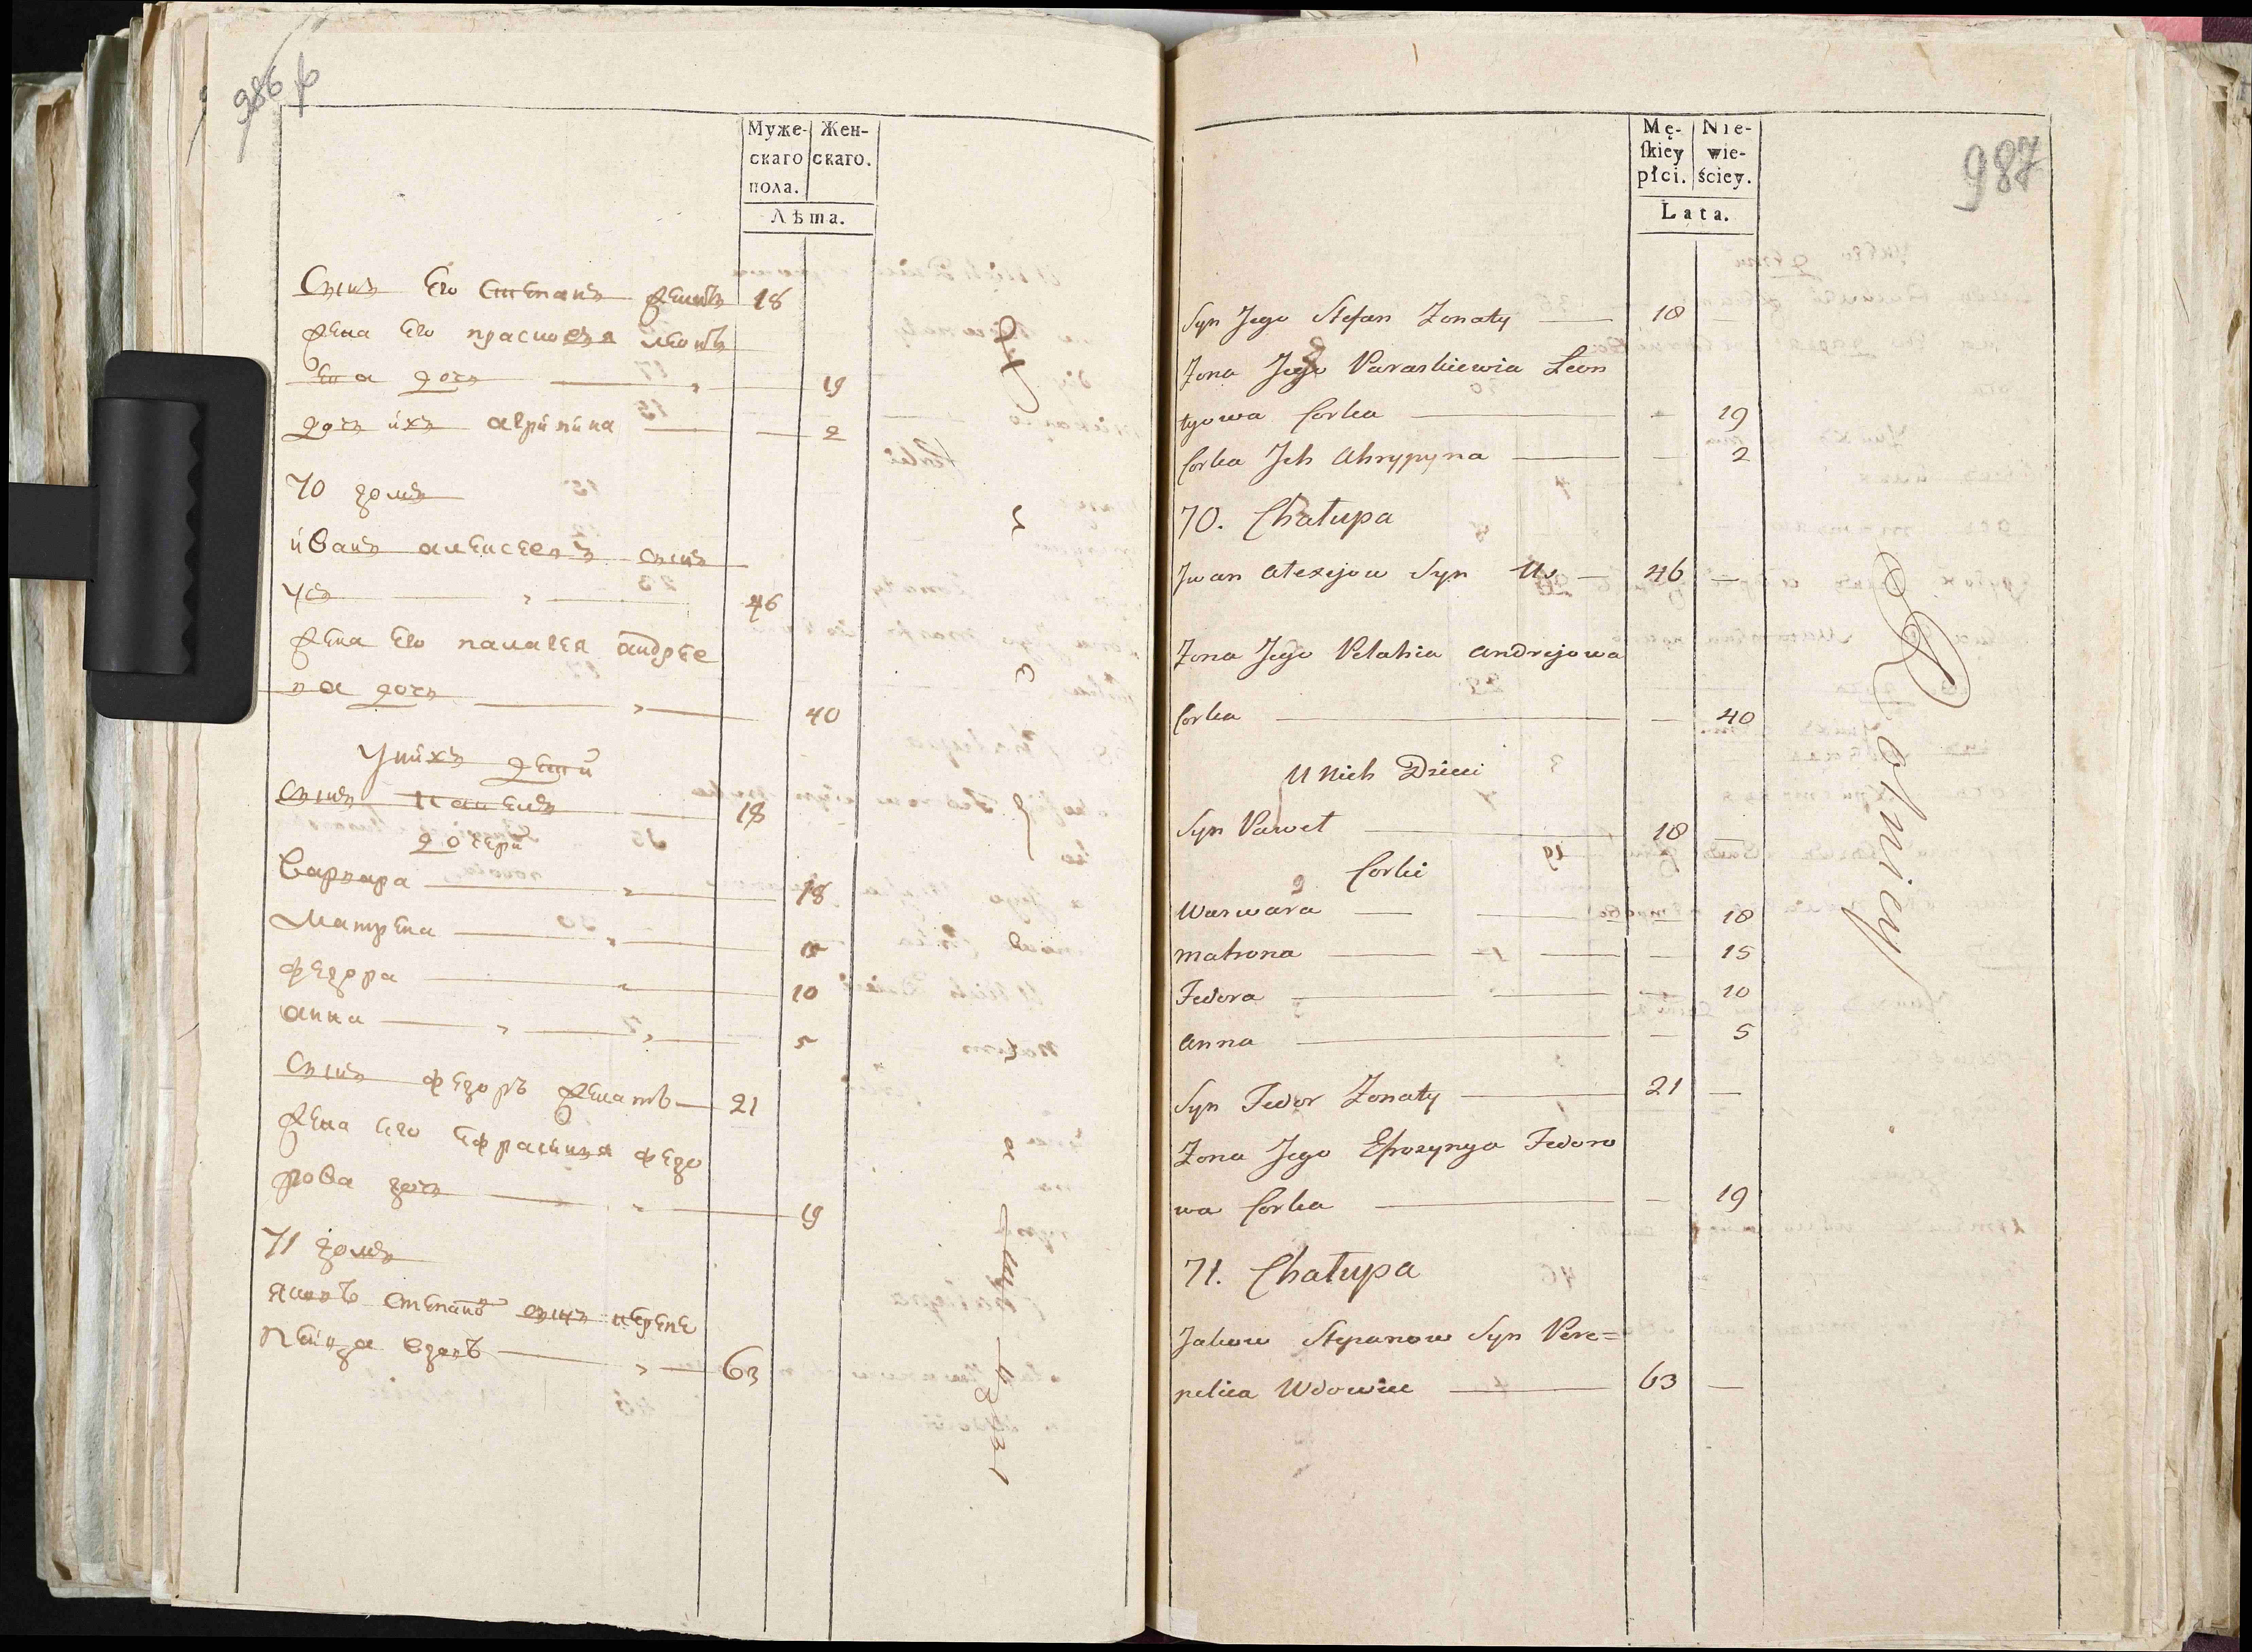 986
Муже-
скаго
пола.
Жен-
скаго.
Лѣта.
Сынъ его Степанъ женатъ 18
жена его прасковя леонть
ева дочь 19
дочь ихъ агрипина 2
70 домъ
иванъ алексеевъ сынъ
усъ 46
жена его палагея андрее
ва дочь 40
унихъ дети
сынъ павелъ 18
дочери
варвара 18
матрена 15
федора 10
анна 5
сынъ федоръ женатъ 21
жена его ефрасиня федо
рова дочь 19
71 домъ
яковъ степановъ сынъ перепе
лица вдовъ 63
987
Mę-
ſkiey
płci.
Nie-
wie-
ściey.
Lata.
Syn Jego Stefan Zonaty — 18 —
Zona Jego Paraskiewia Leon
tyowa Corka — 19
Corka Jch Ahrypyna — 2
70. Chałupa
Jwan Alexejow Syn Us — 46 —
Zona Jego Pelahia Andrejowa
Corka — 40
U Nich Dzieci
Syn Paweł — 18 —
Corki
Warwara — 18
Matrona — 15
Fedora — 10
Anna — 5
Syn Fedor Zonaty — 21 —
Zona Jego Efrozynya Fedoro
wa Corka — 19
71. Chałupa
Jakow Stepanow Syn Pere=
pelica Wdowiec — 63 —